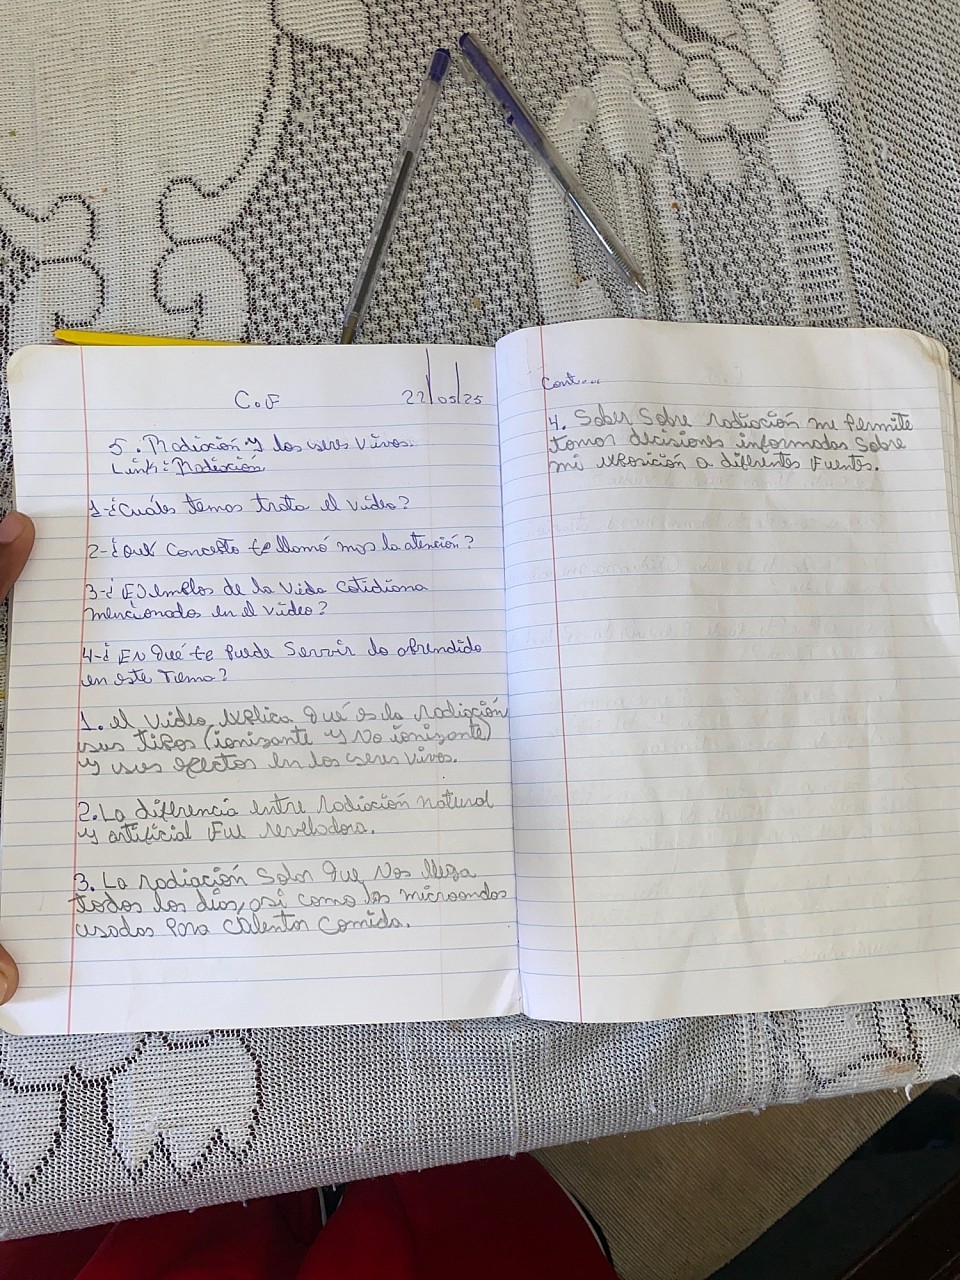 C.F 22/05/25
5. Radiación y los seres vivos.
Link: Radiación
1-¿Cuáles temas trata el video?
2-¿Qué Concepto te llamó mas la atención?
3-¿Ejemplos de la vida cotidiana
mencionados en el video?
4-¿En Qué te puede Servir lo aprendido
en este Tema?
1. el video explica Qué es la radiación
sus tipos (ionizante y No ionizante)
y sus efectos en los seres vivos.
2. La diferencia entre radiación natural
y artificial Fue reveladora.
3. La radiación Solar Que Nos llega
todos los dias, asi como las microondas
usadas para calentar comida.
Cont...
4. Saber Sobre radiación me permite
tomar decisiones informadas Sobre
mi exposición a diferentes Fuentes.